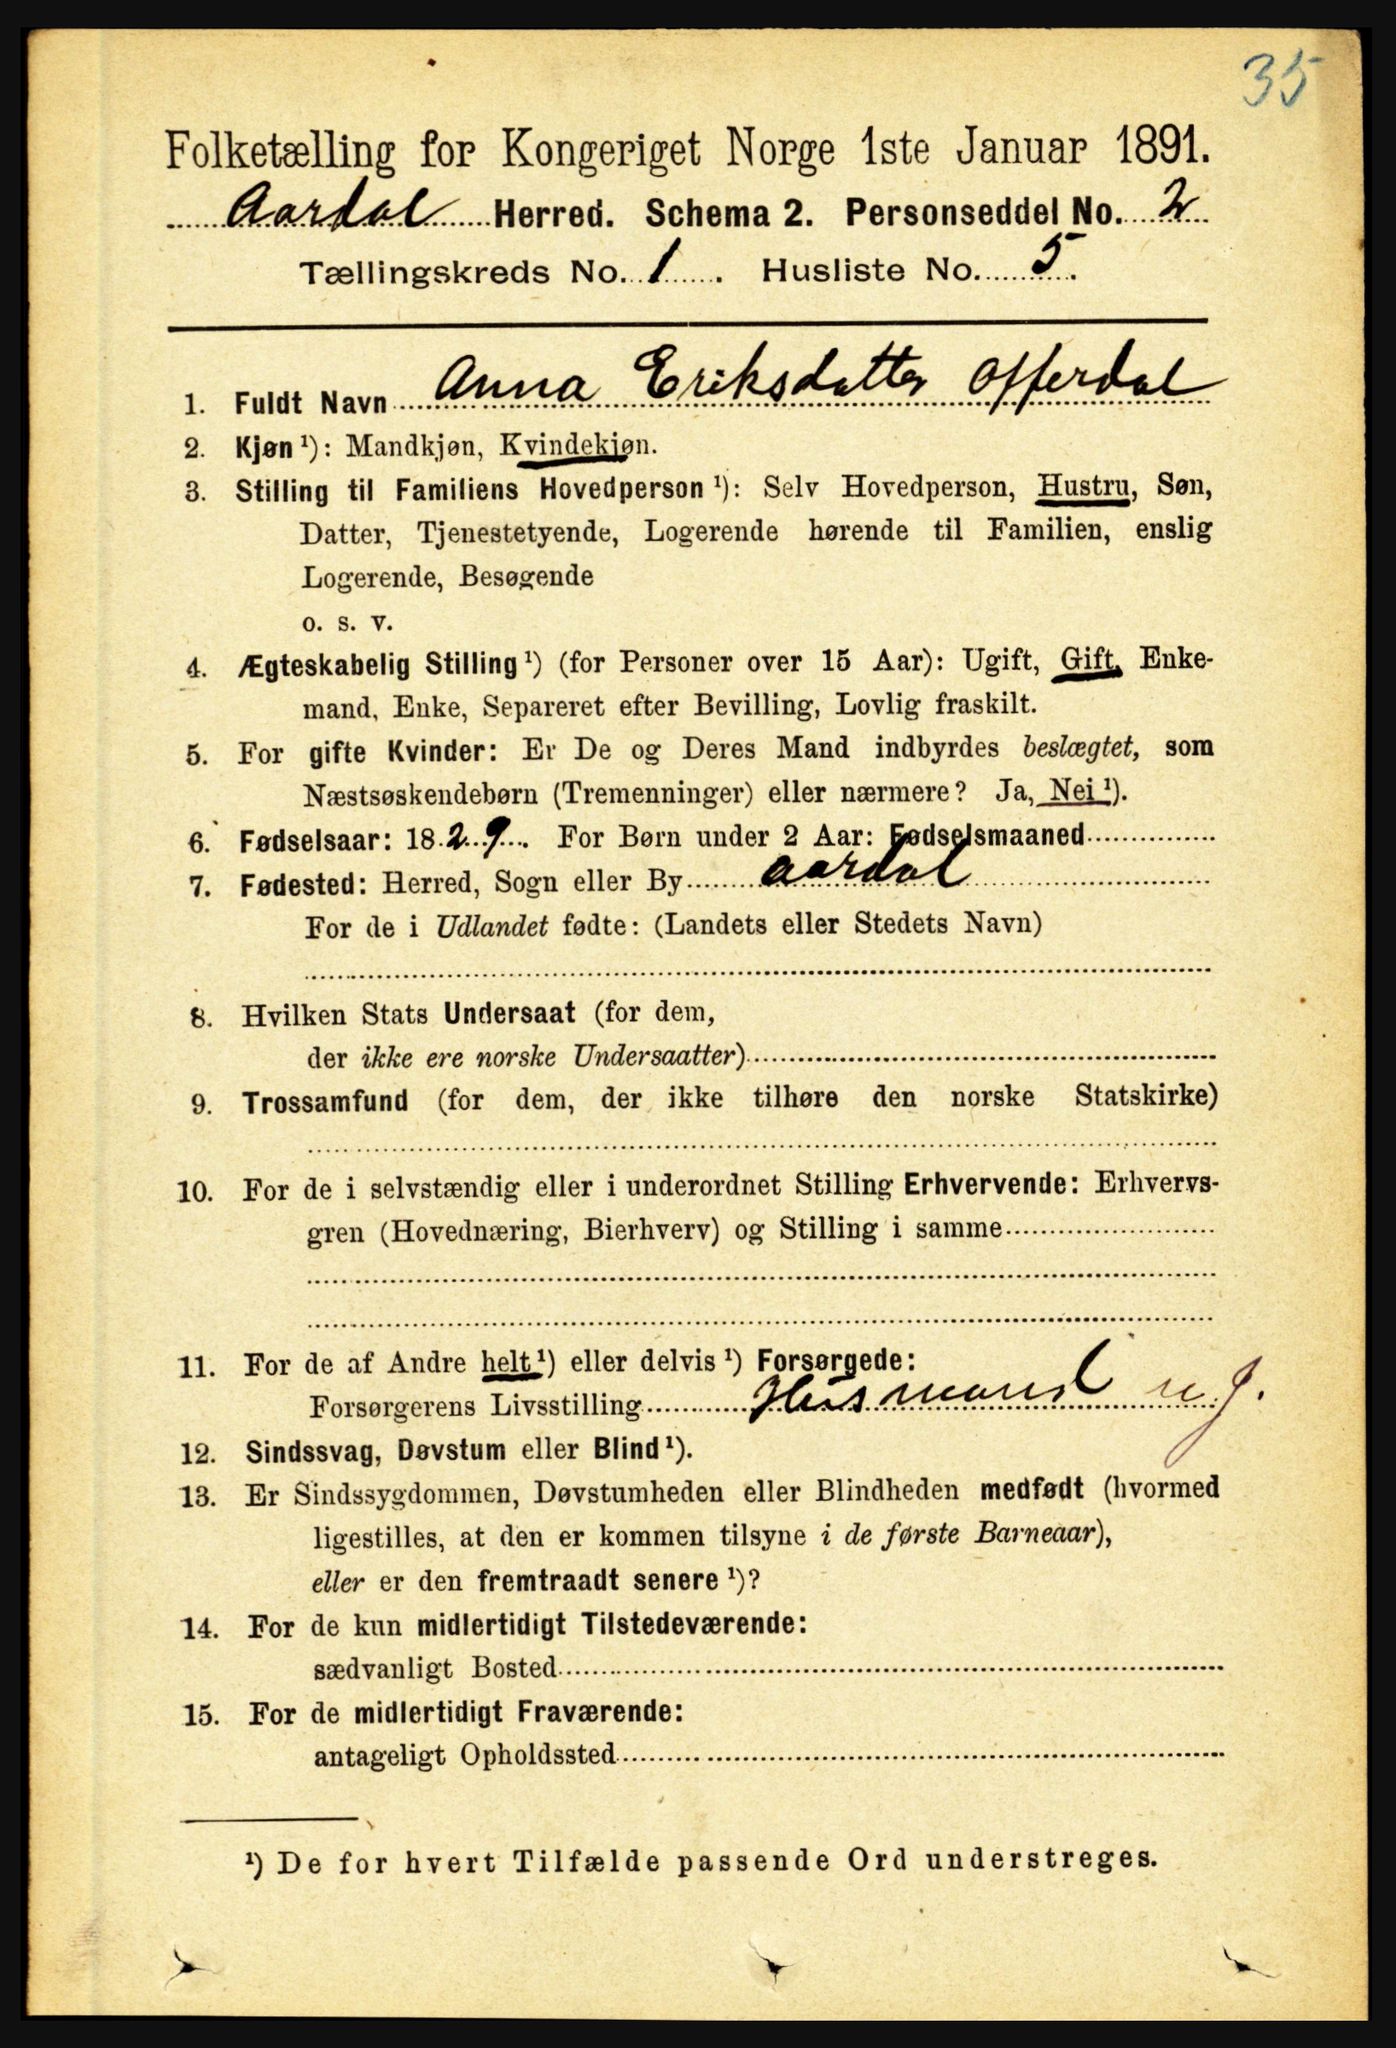 35
Folketælling for Kongeriget Norge 1ste Januar 1891.
Aardal Herred. Schema 2. Personseddel No. 2
Tællingskreds No. 1. Husliste No. 5.
1. Fuldt Navn Anna Eriksdatter Offerdal
2. Kjøn ¹): Mandkjøn, Kvindekjøn.
3. Stilling til Familiens Hovedperson ¹): Selv Hovedperson, Hustru, Søn,
Datter, Tjenestetyende, Logerende hørende til Familien, enslig
Logerende, Besøgende
o. s. v.
4. Ægteskabelig Stilling ¹) (for Personer over 15 Aar): Ugift, Gift, Enke-
mand, Enke, Separeret efter Bevilling, Lovlig fraskilt.
5. For gifte Kvinder: Er De og Deres Mand indbyrdes beslægtet, som
Næstsøskendebørn (Tremenninger) eller nærmere? Ja, Nei ¹).
6. Fødselsaar: 1829. For Børn under 2 Aar: Fødselsmaaned
7. Fødested: Herred, Sogn eller By Aardal
For de i Udlandet fødte: (Landets eller Stedets Navn)
8. Hvilken Stats Undersaat (for dem,
der ikke ere norske Undersaatter)
9. Trossamfund (for dem, der ikke tilhøre den norske Statskirke)
10. For de i selvstændig eller i underordnet Stilling Erhvervende: Erhvervs-
gren (Hovednæring, Bierhverv) og Stilling i samme
11. For de af Andre helt ¹) eller delvis ¹) Forsørgede:
Forsørgerens Livsstilling Husmand m. J.
12. Sindssvag, Døvstum eller Blind ¹).
13. Er Sindssygdommen, Døvstumheden eller Blindheden medfødt (hvormed
ligestilles, at den er kommen tilsyne i de første Barneaar),
eller er den fremtraadt senere ¹)?
14. For de kun midlertidigt Tilstedeværende:
sædvanligt Bosted
15. For de midlertidigt Fraværende:
antageligt Opholdssted
¹) De for hvert Tilfælde passende Ord understreges.